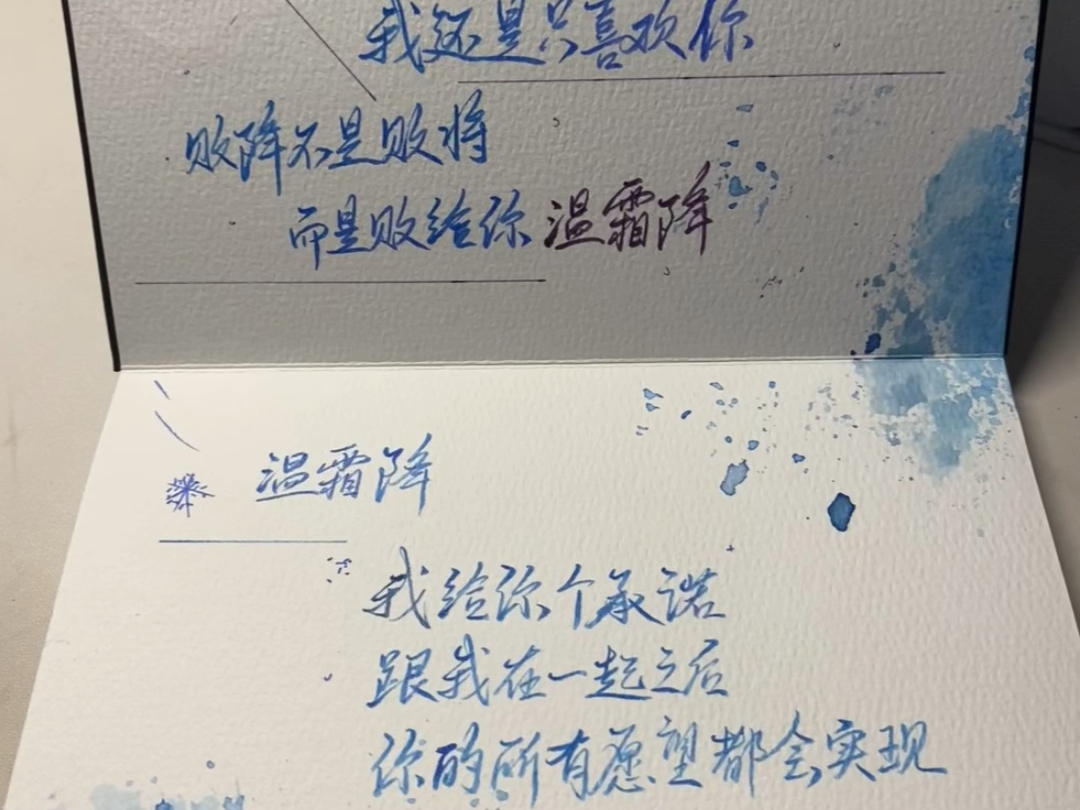 我还是只喜欢你
败降不是败将
而是败给你温霜降
温霜降
我给你个承诺
跟我在一起之后
你的所有愿望都会实现